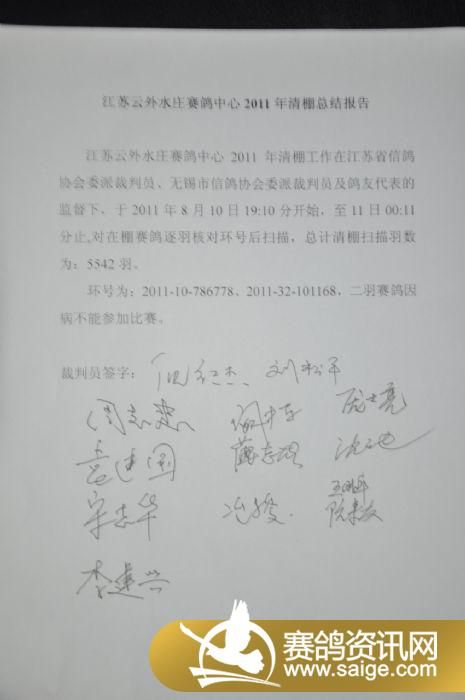 江苏云外水庄赛鸽中心 2011 年清棚总结报告
江苏云外水庄赛鸽中心 2011 年清棚工作在江苏省信鸽
协会委派裁判员、无锡市信鸽协会委派裁判员及鸽友代表的
监督下，于 2011 年 8 月 10 日 19:10 分开始，至 11 日 00:11
分止,对在棚赛鸽逐羽核对环号后扫描，总计清棚扫描羽数
为：5542 羽。
环号为：2011-10-786778、2011-32-101168，二羽赛鸽因
病不能参加比赛。
裁判员签字： 倪红杰 刘松年
周志
袁建国 薛志明
宋志华 冯骏
李建兴
赛鸽资讯网
www.saige.com